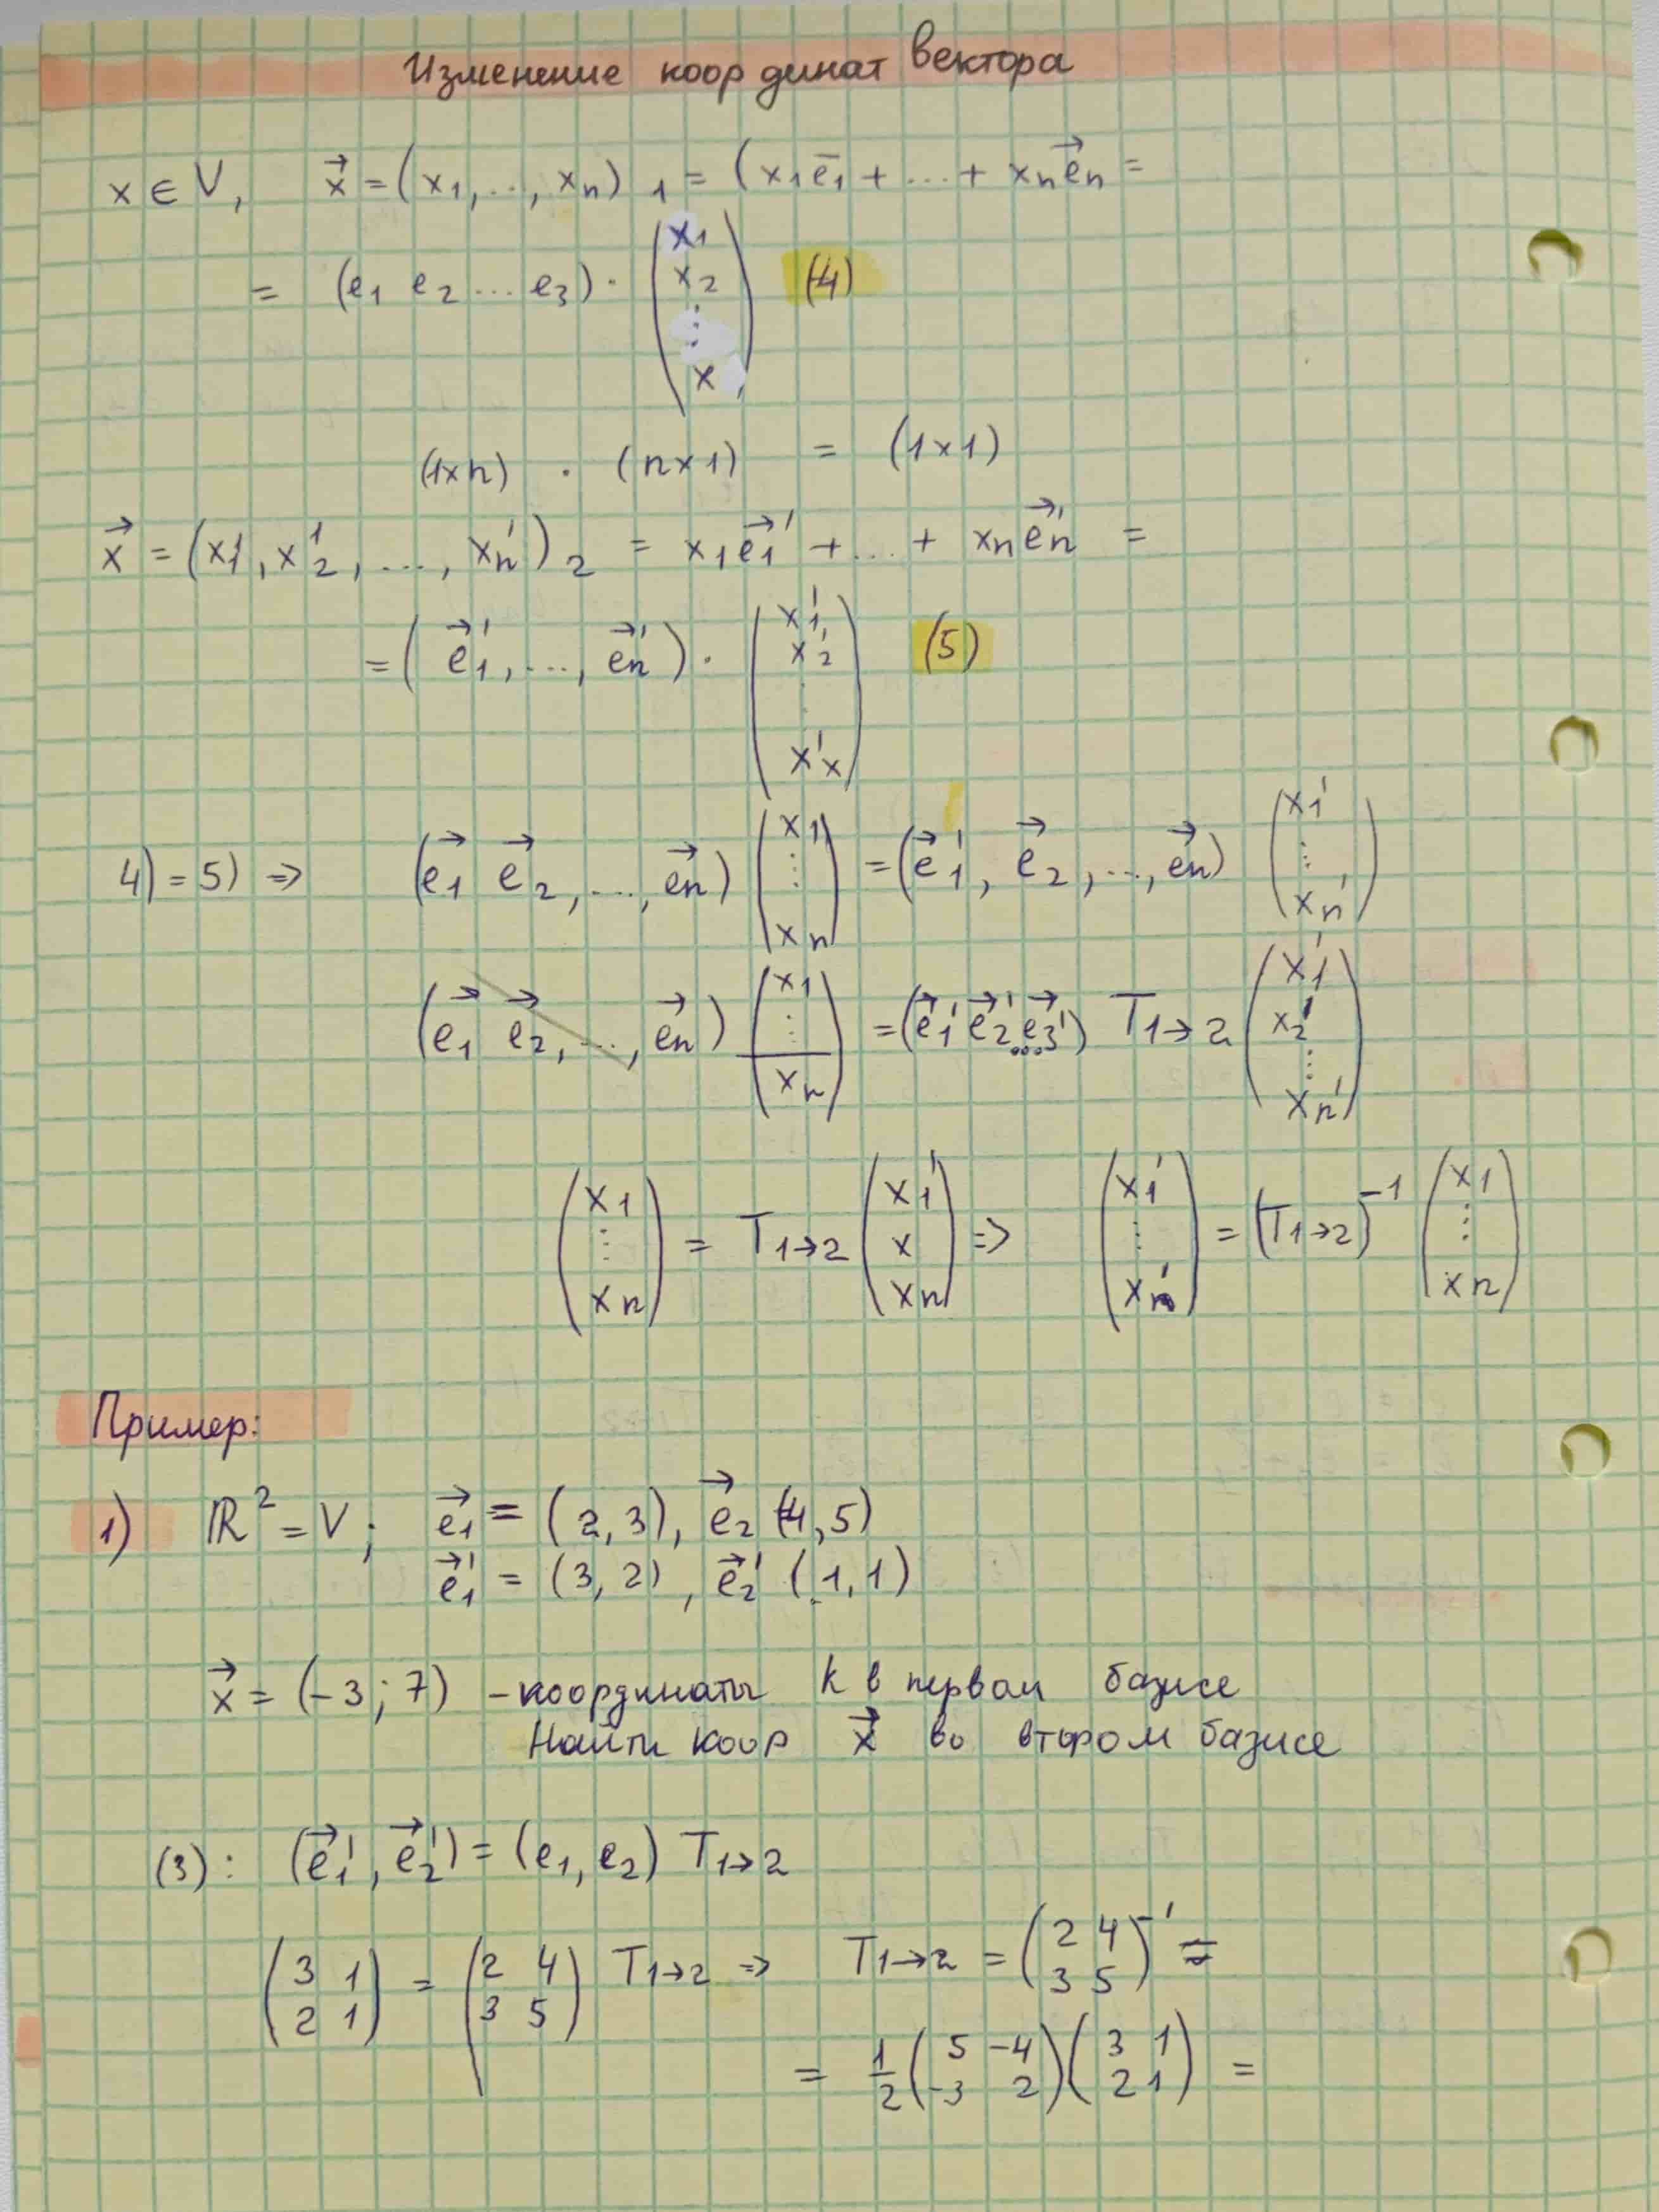 Изменение координат вектора
x ∈ V, x⃗ = (x₁, ..., xₙ)₁ = (x₁e̅₁ + ... + xₙe⃗ₙ =
= (e₁ e₂ ... e₃) · (x₁ x₂ ⋮ x) (4)
(1×n) · (n×1) = (1×1)
x⃗ = (x₁', x₂', ..., xₙ')₂ = x₁e⃗₁' + ... + xₙe⃗ₙ' =
= (e⃗₁', ..., e⃗ₙ') · (x₁' x₂' ⋮ x'ₓ) (5)
4) = 5) ⇒ (e⃗₁ e⃗₂, ..., e⃗ₙ) (x₁ ⋮ xₙ) = (e⃗₁', e⃗₂, ..., e⃗ₙ) (x₁' ⋮ xₙ')
(e⃗₁ e⃗₂, ..., e⃗ₙ) (x₁ ⋮ xₙ) = (e⃗₁' e⃗₂' ... e⃗₃') T₁→₂ (x₁' x₂' ⋮ xₙ')
(x₁ ⋮ xₙ) = T₁→₂ (x₁' x xₙ) ⇒ (x₁' ⋮ xₙ') = (T₁→₂)⁻¹ (x₁ ⋮ xₙ)
Пример:
1) ℝ² = V; e⃗₁ = (2, 3), e⃗₂ (4, 5)
e⃗₁' = (3, 2), e⃗₂' (1, 1)
x⃗ = (-3; 7) - координаты k в первом базисе
Найти коор x⃗ во втором базисе
(3): (e⃗₁', e⃗₂') = (e₁, e₂) T₁→₂
(3 1 2 1) = (2 4 3 5) T₁→₂ ⇒ T₁→₂ = (2 4 3 5)⁻¹ =
= 1/2 (5 -4 -3 2) (3 1 2 1) =